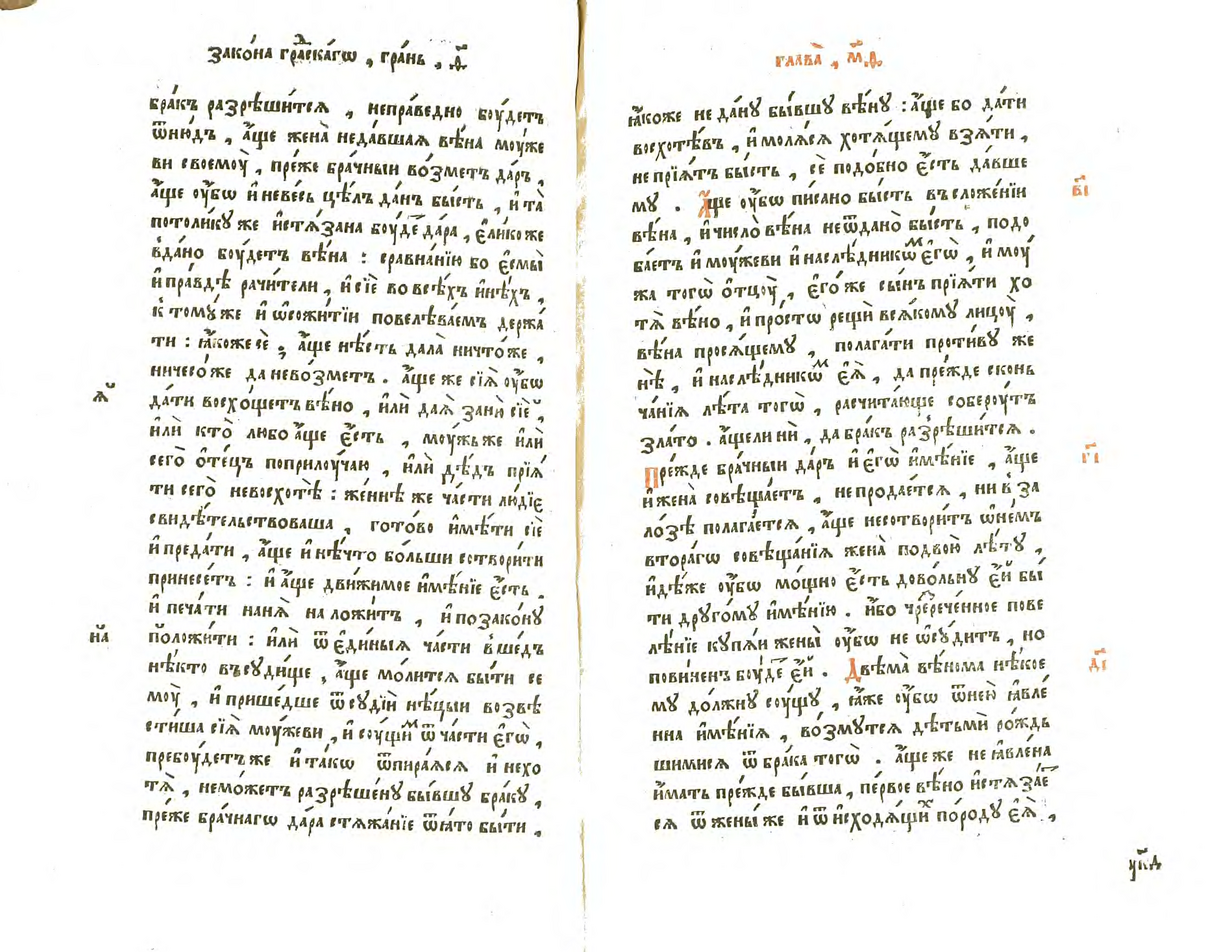 Зако́на гра́дскагѡ , гра́нь , ѳ҃.
бра́къ разрѣши́тсѧ , непра́ведно боу́детъ
ѿню́дъ , а҆́ще жена̀ неда́вшаѧ вѣ́на моу́же
ви своемоу̀ , преже бра́чныи во́зметъ да́ръ ,
а҆́ще оу҆́бѡ и҆ невесь цѣ́лъ да́нъ бы́сть , и҆ та̀
потоли́ку же и҆стѧ́зана боу́де да́ра , є҆ли́ко же
вда́но боу́детъ вѣ́на : сравна́нїю бо є҆смы̀
и҆ пра́вдѣ рачи́тели , и҆ сїѐ во все́хъ и҆нѣ́хъ ,
к томꙋ́ же и҆ ѡ҆сожи́тїи повелѣва́емъ держа́
ти : ꙗ҆́коже сѐ ; а҆́ще нѣ́сть дала̀ ничто́же ,
ничесо́же да нево́зметъ . а҆́ще же сїѧ̀ оу҆́бѡ
а҃і
да́ти восхо́щетъ вѣ́но , и҆лѝ даѧ̀ занѐ сїѐ ,
и҆лѝ кто̀ любо а҆́ще є҆́сть , моу́жь же и҆лѝ
сего̀ ѻ҆те́цъ поприлоу́чаю , и҆лѝ дѣ́дъ прїѧ́
ти сего̀ невосхотѣ̀ : же́ннѣ же ча́сти лю́дїе
свидѣ́тельствоваша , гото́во и҆мѣ́ти сїѐ
и҆ преда́ти , а҆́ще и҆ нѣ́что бо́льши сотвори́ти
принесе́тъ : и҆ а҆́ще дви́жимое и҆мѣ́нїе є҆́сть .
и҆ печа́ти нанѧ̀ на ложи́тъ , и҆ позако́нꙋ
положи́ти : и҆лѝ ѿ є҆ди́ныѧ ча́сти вше́дъ
нѣ́кто въсꙋди́ще , а҆́ще мо́литсѧ бы́ти се
моу̀ , и҆ прише́дше ѿ сꙋдїѝ нѣ́цыи возвѣ
сти́ша сїѧ̀ моу́жеви , и҆ соу́щим ѿ ча́сти є҆гѡ̀ ,
пребоу́детъ же и҆ та́кѡ ѿпира́ѧсѧ и҆ нехо
тѧ̀ , немо́жетъ разрѣше́нꙋ бы́вшꙋ бра́кꙋ ,
пре́же бра́чнагѡ да́ра стѧжа́нїе ѿѧ́то бы́ти ,
глава̀ , м҃ѳ.
ꙗ҆́коже не да́нꙋ бы́вшꙋ вѣ́нꙋ : а҆́ще бо да́ти
восхотѣ́въ , и҆ молѧ́сѧ хотѧ́щемꙋ взѧ́ти ,
не прїѧ́тъ бы́сть , сѐ подо́бно є҆́сть да́вше
мꙋ . А҆́ще оу҆́бѡ пи́сано бы́сть въ сложе́нїи
в҃і
вѣ́на , и҆ число̀ вѣ́на не ѿдано̀ бы́сть , подо
ба́етъ и҆ моу́жеви и҆ наслѣ́дникѡм є҆гѡ̀ , и҆ моу́
жа тогѡ̀ ѻ҆тцоу̀ , є҆го́ же сы́нъ прїѧ́ти хо
тѧ̀ вѣ́но , и҆ про́стѡ рещѝ всѧ́комꙋ лицоу̀ ,
вѣ́на просѧ́щемꙋ , полага́ти проти́вꙋ же
нѣ̀ , и҆ наслѣ́дникѡм є҆ѧ̀ , да пре́жде сконь
ча́нїѧ лѣ́та тогѡ̀ , расчита́юще собероу́тъ
зла́то . а҆́щели нѝ , да бра́къ разрѣши́тсѧ .
Пре́жде бра́чныи да́ръ и҆ є҆гѡ̀ и҆мѣ́нїе , а҆́ще
г҃і
и҆ жена̀ совѣща́етъ , не продае́тсѧ , ни в за
ло́зѣ полага́етсѧ , а҆́ще несотвори́тъ ѡ҆ не́мъ
втора́гѡ совѣща́нїѧ жена̀ по двою̀ лѣ́тꙋ ,
и҆дѣ́же оу҆́бѡ мо́щно є҆́сть дово́льнꙋ є҆́й бы́
ти дрꙋго́мꙋ и҆мѣ́нїю . и҆́бо чрѐрече́нное пове
лѣ́нїе кꙋплѝ жены̀ оу҆́бѡ не ѡ҆сꙋ́дитъ , но
пови́ненъ боу́де є҆́й . Двѣма̀ вѣ́нома нѣ́кое
д҃і
мꙋ до́лжнꙋ соу́щꙋ , ꙗ҆́же оу҆́бѡ ѿ нею̀ ꙗ҆вле́
нна и҆мѣ́нїѧ , во́змꙋтсѧ дѣтьмѝ ро́ждь
шимисѧ ѿ бра́ка тогѡ̀ . а҆́ще же не ꙗ҆вле́на
и҆́мать пре́жде бы́вша , пе́рвое вѣ́но и҆стѧзае
сѧ ѿ жены́ же и҆ ѿ и҆сходѧ́щих по ро́дꙋ є҆ѧ̀ ,
ук҃д